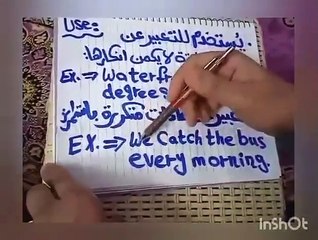 Use: يُستخدم للتعبير عن
لا يمكن انكارها:
Ex. ⇒ Water
degree
متكررة
EX. ⇒ We Catch the bus
every morning.
InShOt